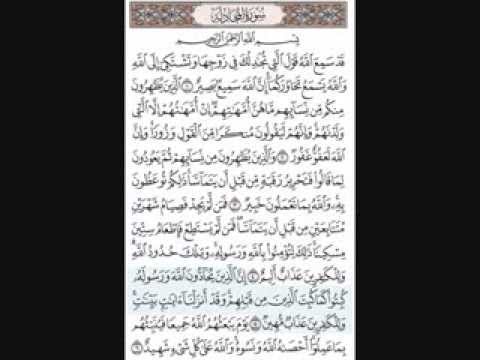 سُورَةُ المُجَادِلَةِ
بِسْمِ اللَّهِ الرَّحْمَٰنِ الرَّحِيمِ
قَدْ سَمِعَ اللَّهُ قَوْلَ الَّتِي تُجَادِلُكَ فِي زَوْجِهَا وَتَشْتَكِي إِلَى اللَّهِ
وَاللَّهُ يَسْمَعُ تَحَاوُرَكُمَا إِنَّ اللَّهَ سَمِيعٌ بَصِيرٌ ١ الَّذِينَ يُظَاهِرُونَ
مِنكُم مِّن نِّسَائِهِم مَّا هُنَّ أُمَّهَاتِهِمْ إِنْ أُمَّهَاتُهُمْ إِلَّا الَّٰتِي
وَلَدْنَهُمْ وَإِنَّهُمْ لَيَقُولُونَ مُنكَرًا مِّنَ الْقَوْلِ وَزُورًا وَإِنَّ
اللَّهَ لَعَفُوٌّ غَفُورٌ ٢ وَالَّذِينَ يُظَاهِرُونَ مِن نِّسَائِهِمْ ثُمَّ يَعُودُونَ
لِمَا قَالُوا فَتَحْرِيرُ رَقَبَةٍ مِّن قَبْلِ أَن يَتَمَاسَّا ذَٰلِكُمْ تُوعَظُونَ
بِهِ وَاللَّهُ بِمَا تَعْمَلُونَ خَبِيرٌ ٣ فَمَن لَّمْ يَجِدْ فَصِيَامُ شَهْرَيْنِ
مُتَتَابِعَيْنِ مِن قَبْلِ أَن يَتَمَاسَّا فَمَن لَّمْ يَسْتَطِعْ فَإِطْعَامُ سِتِّينَ
مِسْكِينًا ذَٰلِكَ لِتُؤْمِنُوا بِاللَّهِ وَرَسُولِهِ وَتِلْكَ حُدُودُ اللَّهِ
وَلِلْكَافِرِينَ عَذَابٌ أَلِيمٌ ٤ إِنَّ الَّذِينَ يُحَادُّونَ اللَّهَ وَرَسُولَهُ
كُبِتُوا كَمَا كُبِتَ الَّذِينَ مِن قَبْلِهِمْ وَقَدْ أَنزَلْنَا آيَاتٍ بَيِّنَاتٍ
وَلِلْكَافِرِينَ عَذَابٌ مُّهِينٌ ٥ يَوْمَ يَبْعَثُهُمُ اللَّهُ جَمِيعًا فَيُنَبِّئُهُم
بِمَا عَمِلُوا أَحْصَاهُ اللَّهُ وَنَسُوهُ وَاللَّهُ عَلَىٰ كُلِّ شَيْءٍ شَهِيدٌ ٦